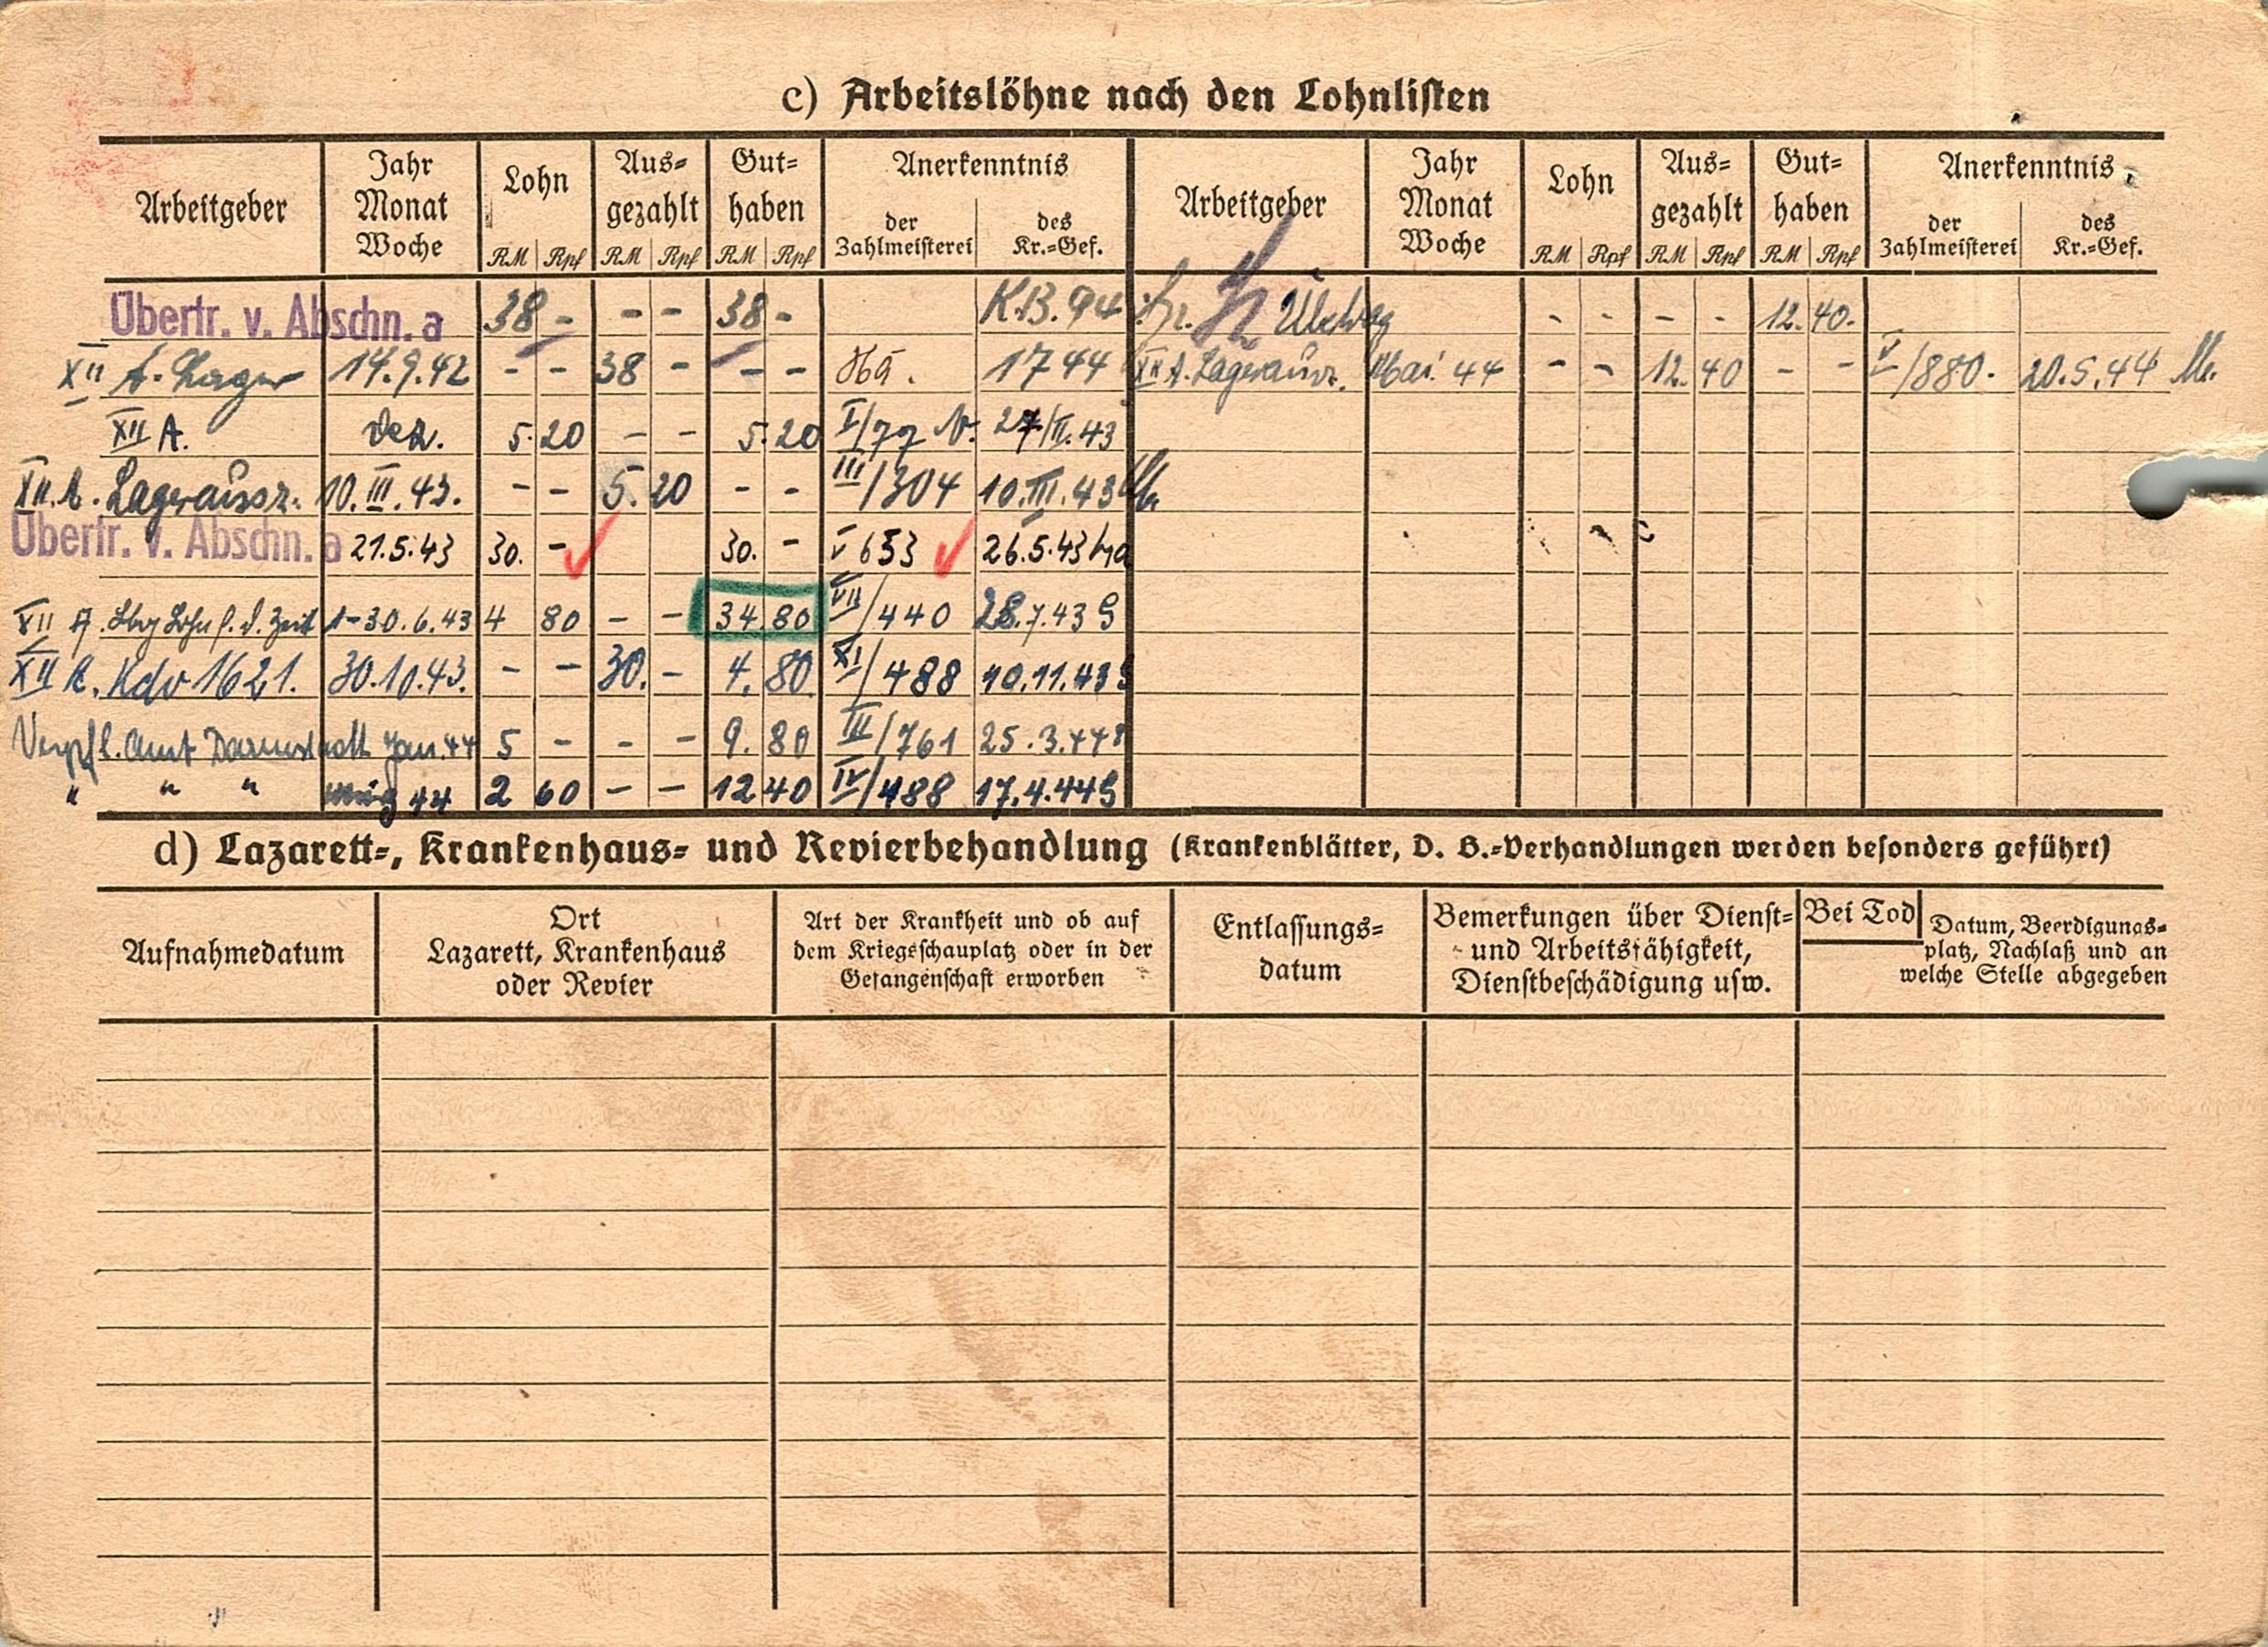 c) Arbeitslöhne nach den Lohnlisten
Arbeitgeber Jahr Monat Woche Lohn RM Rpf Aus-gezahlt RM Rpf Gut-haben RM Rpf Anerkenntnis der Zahlmeisterei des Kr.-Gef. Arbeitgeber Jahr Monat Woche Lohn RM Rpf Aus-gezahlt RM Rpf Gut-haben RM Rpf Anerkenntnis der Zahlmeisterei des Kr.-Gef.
Übertr. v. Abschn. a 38 - - - 38 - K.B. 94 - - - - 12. 40.
XII A. Lager 14.9.42 - - 38 - - - 1744 XII A. Lagerausz. Mai 44 - - 12. 40 - - V/880. 20.5.44
XII A. Dez. 5. 20 - - 5. 20 I/77 27/II.43
XII A. Lagerausz. 10.III.43. - - 5. 20 - - III/304 10.III.43
Übertr. v. Abschn. a 21.5.43 30. - 30. - V 653 26.5.43
XII A. f. d. Zeit 1-30.6.43 4 80 - - 34. 80 VII/440 28.7.43
XII A. Kdo 1621. 30.10.43. - - 30. - 4. 80 XI/488 10.11.43
Verpfl. Amt Darmstadt Jan. 44 5 - - - 9. 80 III/761 25.3.44
" " " 44 2 60 - - 12 40 IV/488 17.4.44
d) Lazarett-, Krankenhaus- und Revierbehandlung (Krankenblätter, D. B.-Verhandlungen werden besonders geführt)
Aufnahmedatum
Ort
Lazarett, Krankenhaus
oder Revier
Art der Krankheit und ob auf
dem Kriegsschauplatz oder in der
Gefangenschaft erworben
Entlassungs-
datum
Bemerkungen über Dienst-
und Arbeitsfähigkeit,
Dienstbeschädigung usw.
Bei Tod
Datum, Beerdigungs-
platz, Nachlaß und an
welche Stelle abgegeben